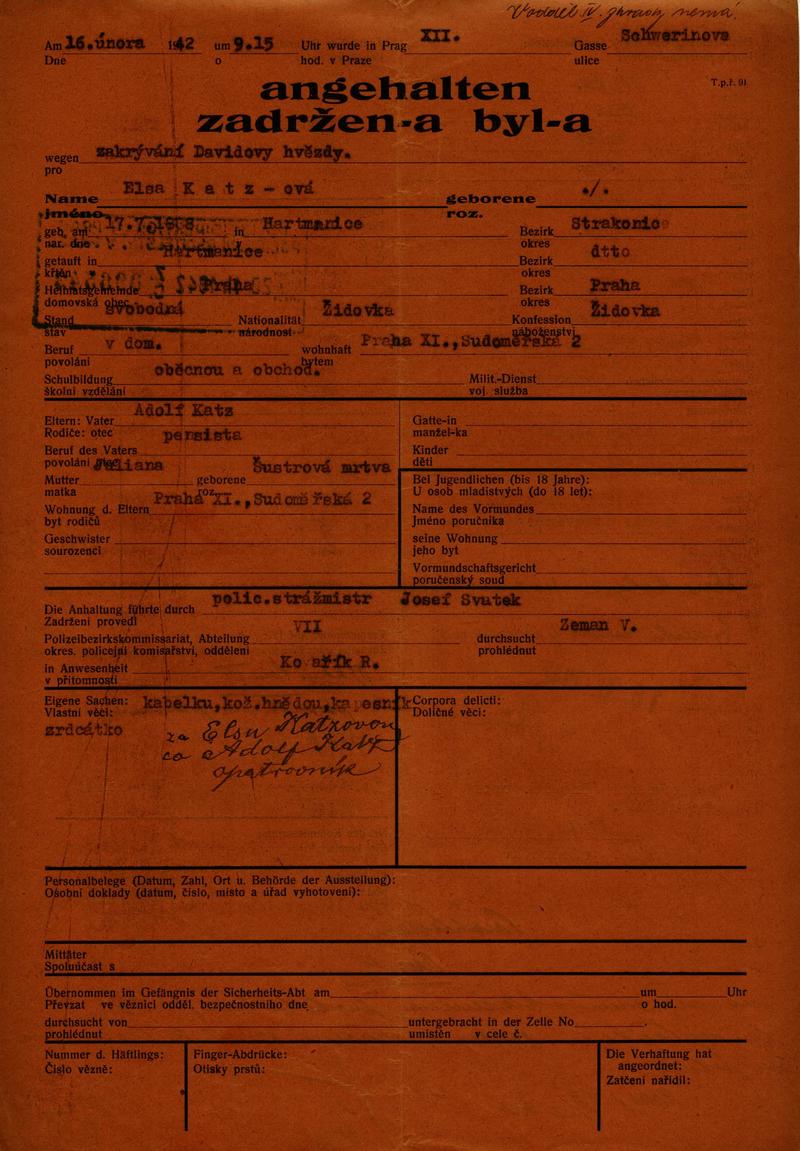 Am 16.února 1942 um 9.15 Uhr wurde in Prag XII. Gasse Schwerinova
Dne o hod. v Praze ulice
angehalten
T.p.ř. 91
zadržen-a byl-a
wegen zakrývání Davidovy hvězdy.
pro
Name Elsa K a t z - ová geborene ./.
jméno roz.
geb. am in Hartmanice Bezirk Strakonice
nar. dne v okres
getauft in Hartmanice Bezirk dtto
křtěn okres
Heimatsgemeinde Praha Bezirk Praha
domovská obec okres
Stand svobodná Nationalität Židovka Konfession Židovka
stav národnost náboženství
Beruf v dom. wohnhaft Praha XI., Sudoměřská 2
povolání bytem
Schulbildung obecnou a obchod. Milit.-Dienst
školní vzdělání voj. služba
Eltern: Vater Adolf Katz
Rodiče: otec
Beruf des Vaters pensista
povolání
Mutter geborene Šustrová mrtva
matka roz.
Wohnung d. Eltern Praha XI., Sudoměřská 2
byt rodičů
Geschwister
sourozenci
Gatte-in
manžel-ka
Kinder
děti
Bei Jugendlichen (bis 18 Jahre):
U osob mladistvých (do 18 let):
Name des Vormundes
Jméno poručníka
seine Wohnung
jeho byt
Vormundschaftsgericht
poručenský soud
Die Anhaltung führte durch polic.strážmistr Josef Svatek
Zadržení provedl
Polizeibezirkskommissariat, Abteilung VII durchsucht Zeman V.
okres. policejní komisařství, oddělení prohlédnut
in Anwesenheit R.
v přítomnosti
Eigene Sachen: kabelku,kož.hnědou,kapesník
Vlastní věci:
zrdcátko
za Elsu Katzovou
co Adolf Katz
opatrovník
Corpora delicti:
Doličné věci:
Personalbelege (Datum, Zahl, Ort u. Behörde der Ausstellung):
Osobní doklady (datum, číslo, místo a úřad vyhotovení):
Mittäter
Spoluúčast s
Übernommen im Gefängnis der Sicherheits-Abt am um Uhr
Převzat ve věznici odděl. bezpečnostního dne o hod.
durchsucht von untergebracht in der Zelle No .
prohlédnut umístěn v cele č.
Nummer d. Häftlings:
Číslo vězně:
Finger-Abdrücke:
Otisky prstů:
Die Verhaftung hat
angeordnet:
Zatčení nařídil: